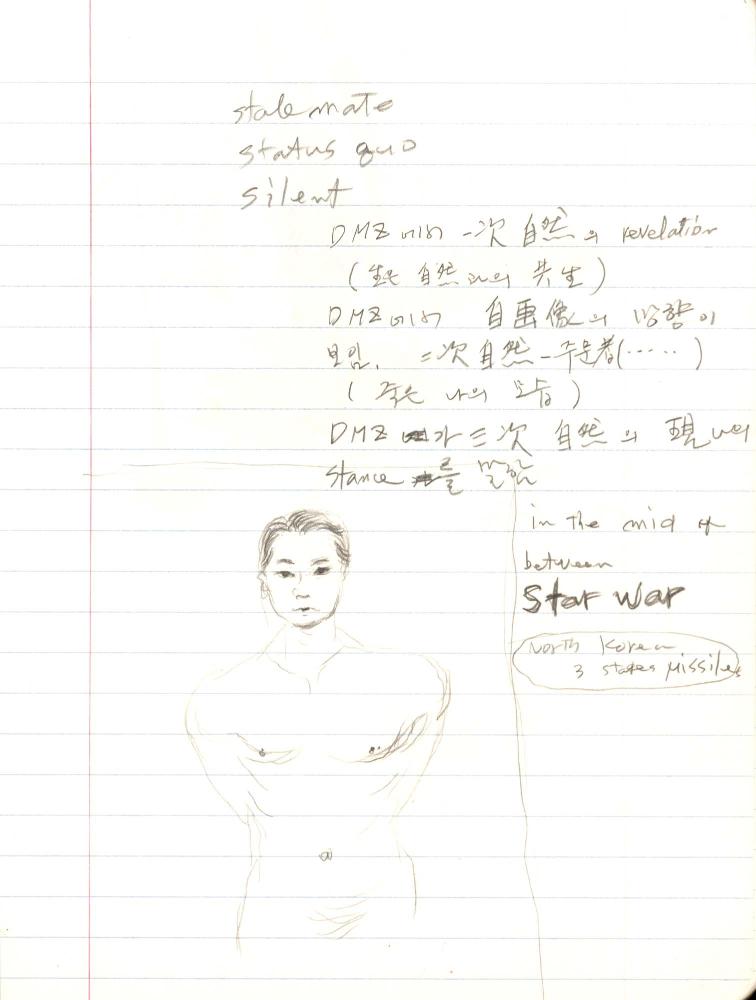 stalemate
status quo
silent
DMZ 에서 一次 自然의 revelation
( 自然과의 共生 )
DMZ 에서 自画像의 방향이
보임. 二次 自然 - 주문者(.....)
( 죽은 나의 모습 )
DMZ 가 三次 自然의 現
stance 를 말함
in the mid of
between
Star War
North Korean
3 states Missiles